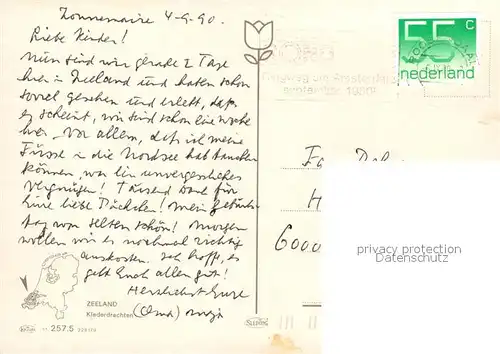 Zonnemaire 4-9-90.
Liebe Kinder!
Nun sind wir gerade 2 Tage
hier in Zeeland und haben schon
soviel gesehen und erlebt, daß
es scheint, wir sind schon eine Woche
hier. Vor allem, daß ich meine
Füsse in die Nordsee hab tauchen
können, war ein unvergessliches
Vergnügen! Tausend Dank für
Eure liebe Päckchen! Mein Geburts-
tag war selten schön! Morgen
wollen wir es nochmal richtig
auskosten. Ich hoffe, es
geht Euch allen gut!
Herzlichst Eure
(Oma)
ZEELAND
Klederdrachten
257.5
55 c
nederland
september 1990!
6000
privacy protection
Datenschutz